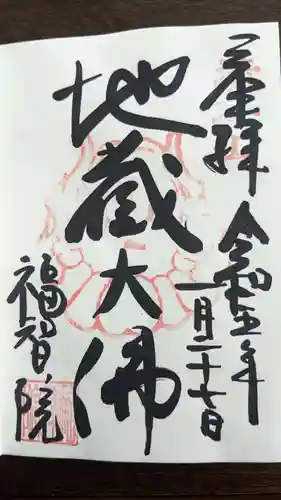 奉拝
令和五年
一月二十七日
地蔵大佛
福智院